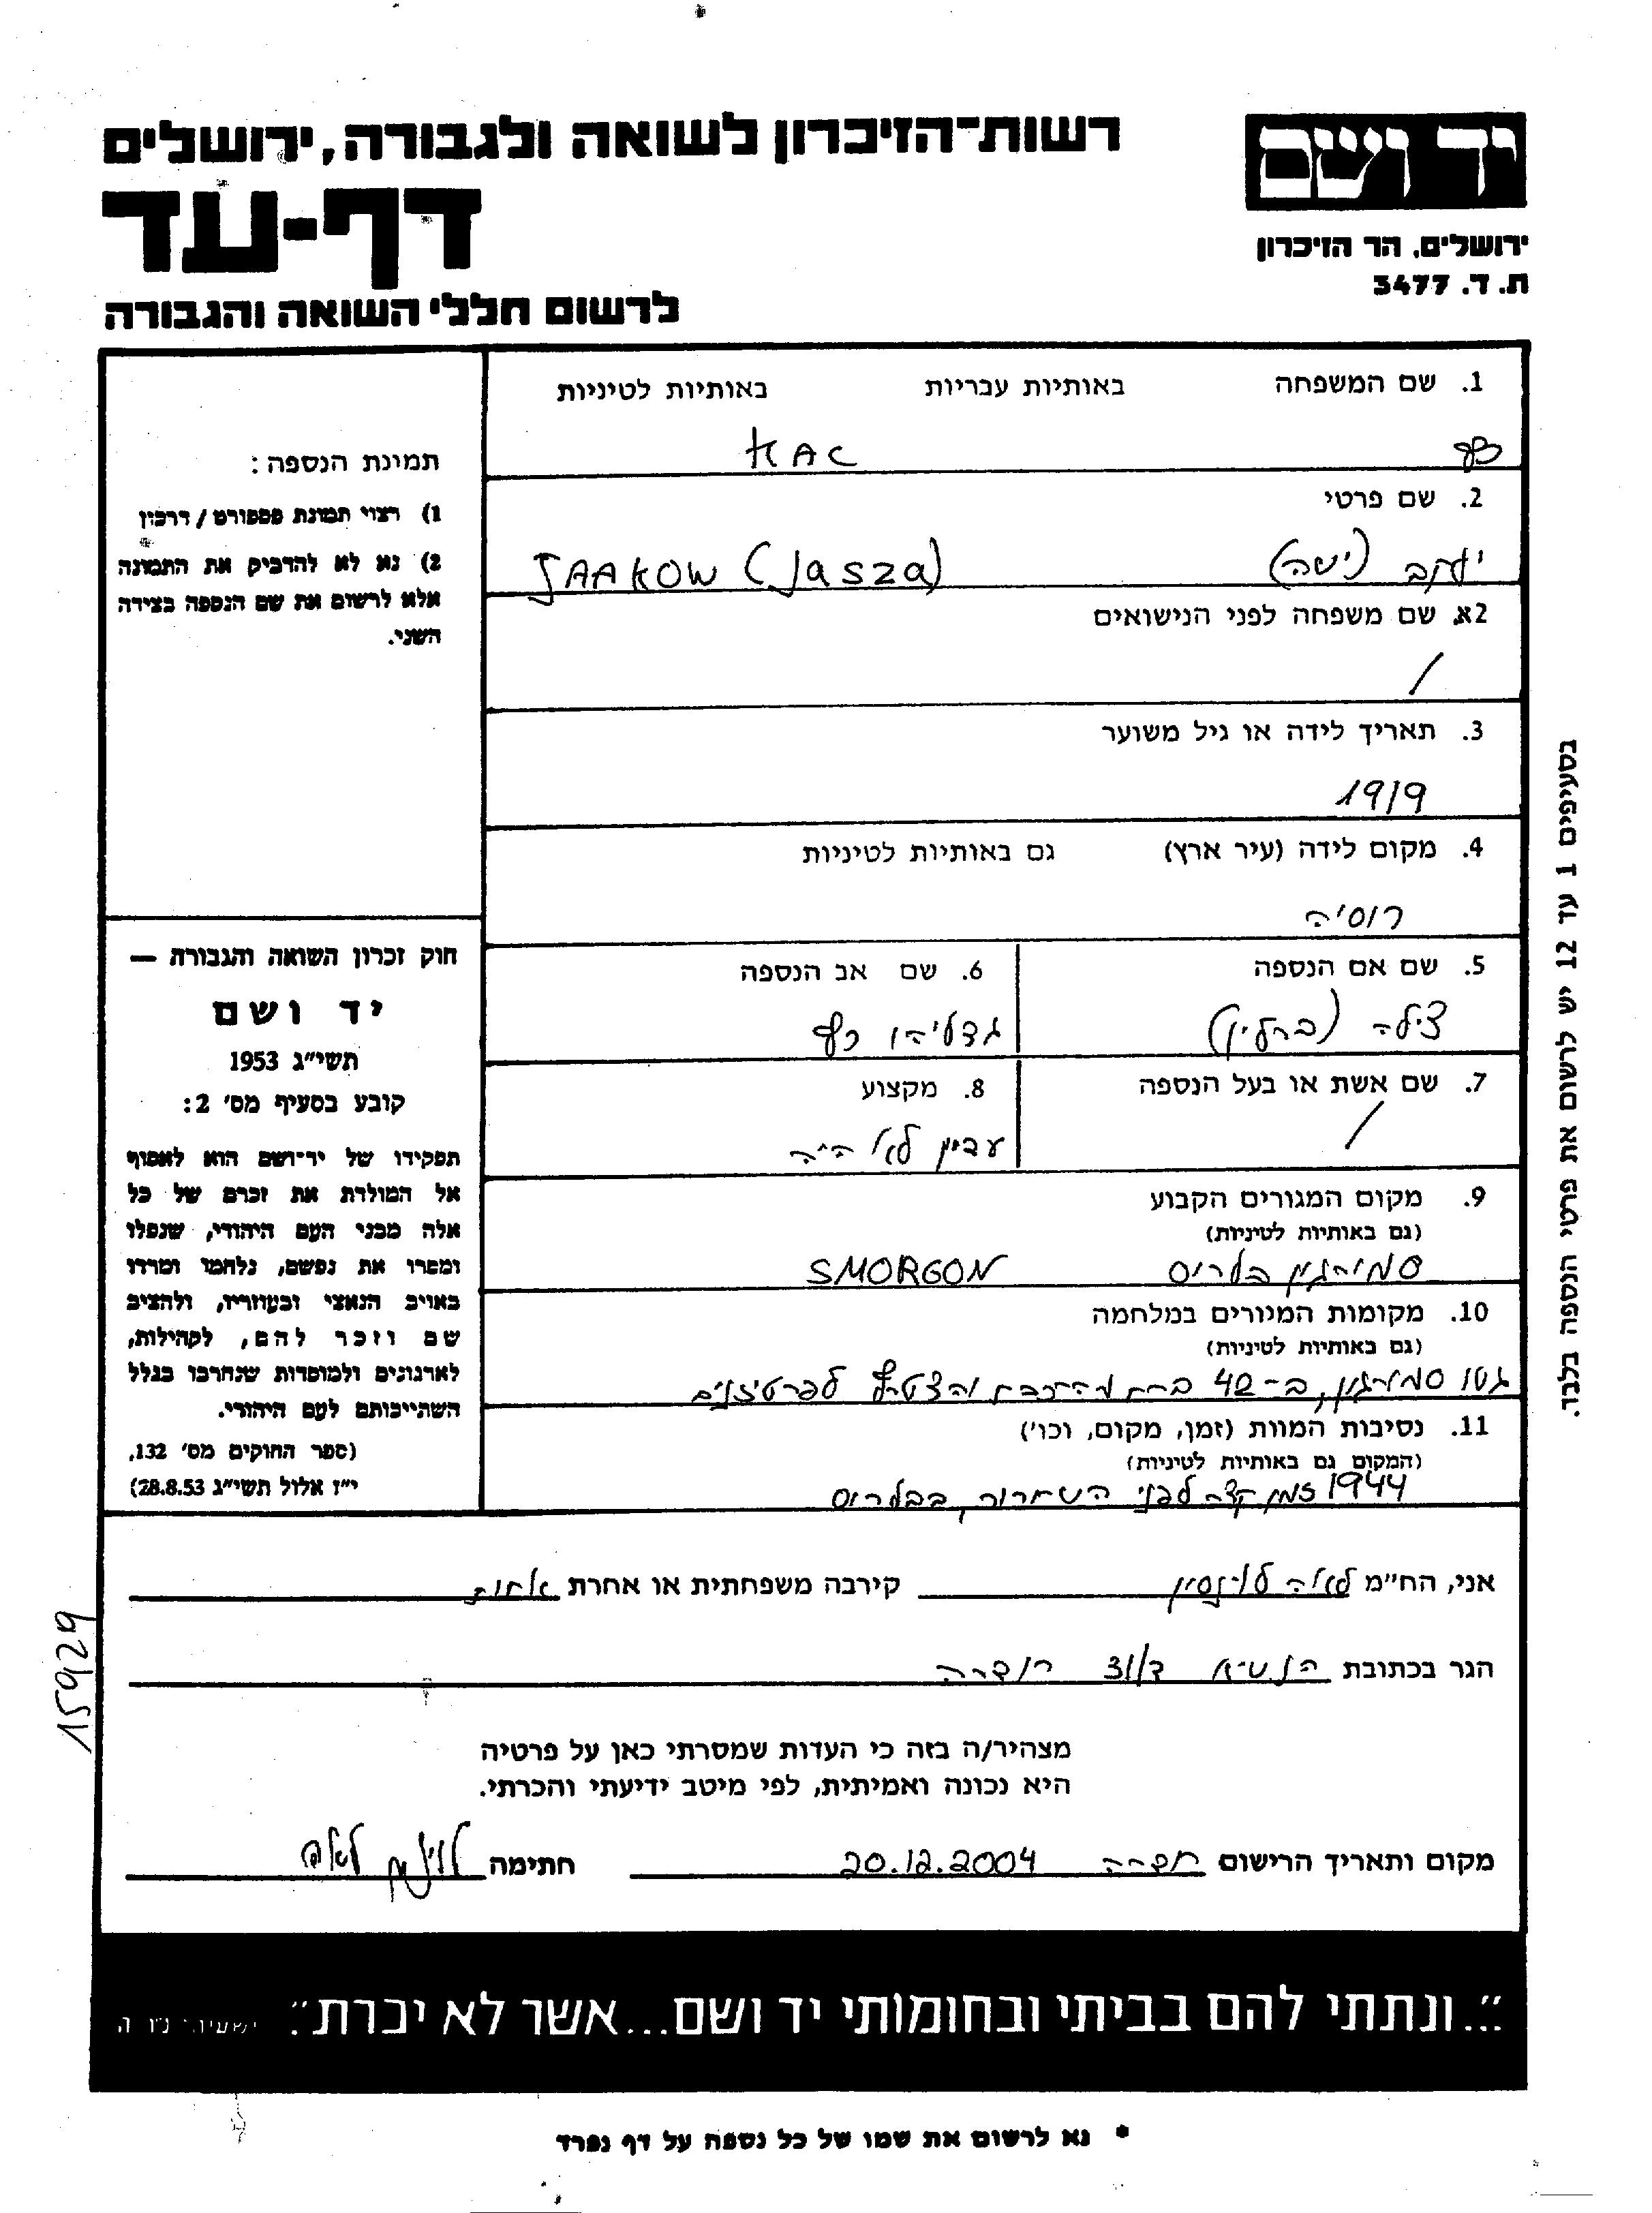 רשות־הזיכרון לשואה ולגבורה, ירושלים
דף-עד
לרשום חללי השואה והגבורה
יד ושם
ירושלים, הר הזיכרון
ת. ד. 3477
1. שם המשפחה באותיות עבריות באותיות לטיניות
כץ KAC
2. שם פרטי
יעקב (ישה) JAAKOW (Jasza)
2א. שם משפחה לפני הנישואים
/
3. תאריך לידה או גיל משוער
1919
4. מקום לידה (עיר ארץ) גם באותיות לטיניות
רוסיה
5. שם אם הנספה 6. שם אב הנספה
צילה (ברלין) גדליהו כץ
7. שם אשת או בעל הנספה 8. מקצוע
/ עדיין לא היה
9. מקום המגורים הקבוע
(גם באותיות לטיניות)
סמורגון בלרוס SMORGON
10. מקומות המגורים במלחמה
(גם באותיות לטיניות)
גטו סמורגון, ב-42 ברח מהרכבת והצטרף לפרטיזנים
11. נסיבות המוות (זמן, מקום, וכו')
(המקום גם באותיות לטיניות)
1944 זמן קצר לפני השחרור, בבלרוס
תמונת הנספה:
1) רצוי תמונת פספורט / דרכון
2) נא לא להדביק את התמונה
אלא לרשום את שם הנספה בצידה
השני.
חוק זכרון השואה והגבורה —
יד ושם
תשי״ג 1953
קובע בסעיף מס' 2:
תפקידו של יד־ושם הוא לאסוף
אל המולדת את זכרם של כל
אלה מבני העם היהודי, שנפלו
ומסרו את נפשם, נלחמו ומרדו
באויב הנאצי ובעוזריו, ולהציב
שם וזכר להם, לקהילות,
לארגונים ולמוסדות שנחרבו בגלל
השתייכותם לעם היהודי.
(ספר החוקים מס' 132,
י״ז אלול תשי״ג 28.8.53)
בסעיפים 1 עד 12 יש לרשום את פרטי הנספה בלבד.
אני, הח״מ לאה לוינסון קירבה משפחתית או אחרת אחות
הגר בכתובת הנשיא 31 חדרה
15929
מצהיר/ה בזה כי העדות שמסרתי כאן על פרטיה
היא נכונה ואמיתית, לפי מיטב ידיעתי והכרתי.
מקום ותאריך הרישום חדרה 20.12.2004 חתימה
״...ונתתי להם בביתי ובחומותי יד ושם...אשר לא יכרת״. ישעיהו נ״ו ה
* נא לרשום את שמו של כל נספה על דף נפרד